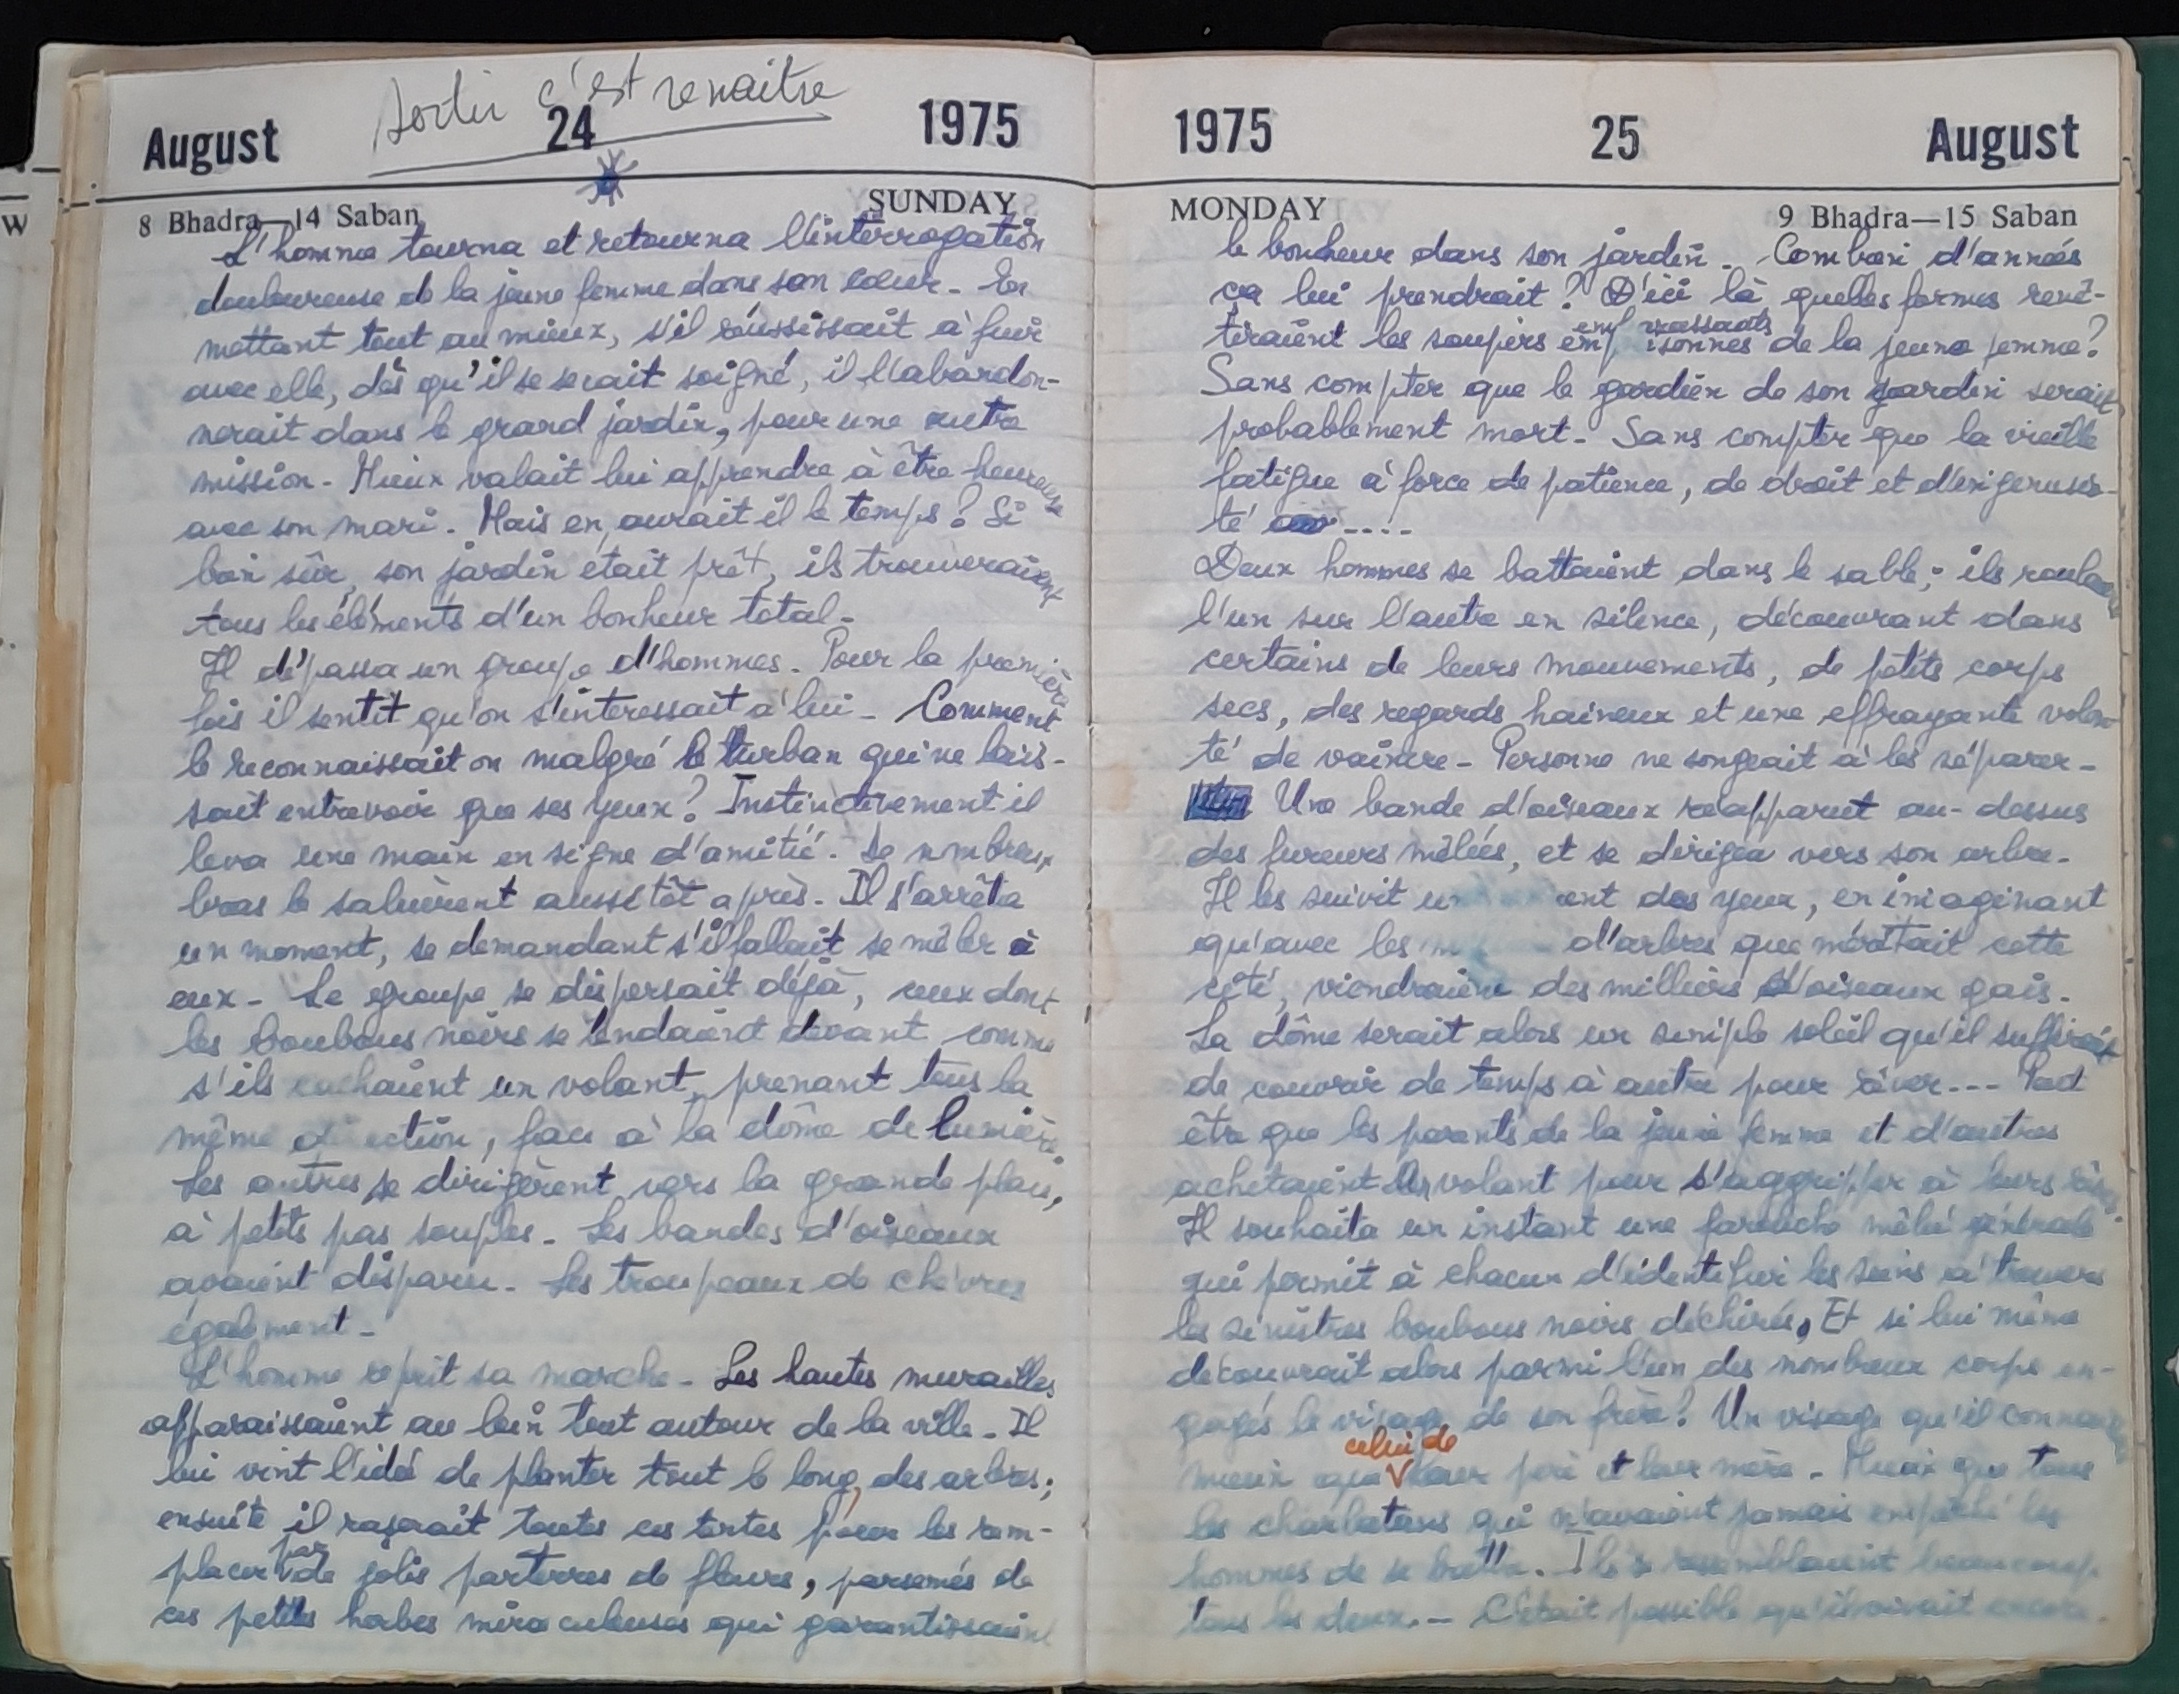 Sortir c'est renaitre
August 24 1975
SUNDAY
8 Bhadra—14 Saban
L'homme tourna et retourna l'interrogation
douloureuse de la jeune femme dans son cœur - En
mettant tout au mieux, s'il réussissait à fuir
avec elle, dès qu'il se serait soigné, il l'abandon-
nerait dans le grand jardin, pour une autre
mission - Mieux valait lui apprendre à être heureuse
avec son mari. Mais en aurait il le temps? Si
bien sûr, son jardin était prêt, ils trouveraient
tous les éléments d'un bonheur total -
Il dépassa un groupe d'hommes - Pour la première
fois il sentit qu'on s'interessait à lui - Comment
le reconnaissait on malgré le turban qui ne lais-
sait entrevoir que ses yeux? Instinctivement il
leva une main en signe d'amitié. De nombreux
bras le saluèrent aussitôt après - Il s'arrêta
un moment, se demandant s'il fallait se mêler à
eux - Le groupe se dispersait déjà, ceux dont
les boubous noirs se tendaient devant comme
s'ils cachaient un volant, prenant tous la
même, face à la dôme de lumière
Les autres se dirigèrent vers la grande place,
à petits pas souples - Les bandes d'oiseaux
avaient disparu - Les troupeaux de chèvres
également -
L'homme reprit sa marche - Les hautes murailles
apparaissaient au loin tout autour de la ville - Il
lui vint l'idée de planter tout le long, des arbres;
ensuite il raserait toutes ces tentes pour les rem-
placer par de jolis parterres de fleurs, parsemés de
ces petites herbes miraculeuses qui garantissaient
1975 25 August
MONDAY
9 Bhadra—15 Saban
le bonheur dans son jardin - Combien d'années
ça lui prendrait? D'ici là quelles formes revê-
tiraient les soupirs de la jeune femme?
Sans compter que le gardien de son jardin serait
probablement mort - Sans compter que la vieille
fatigue à force de patience, de droit et
té ....
Deux hommes se battaient dans le sable; ils roulaient
l'un sur l'autre en silence, découvrant dans
certains de leurs mouvements, de petits corps
secs, des regards haineux et une effrayante volon-
té de vaincre - Personne ne songeait à les séparer -
Une bande d'oiseaux réapparut au-dessus
des fureurs mêlées, et se dirigea vers son arbre -
Il les suivit des yeux, en imaginant
qu'avec les d'arbres que méritait cette
cité, viendraient des milliers d'oiseaux gais -
La dôme serait alors un simple soleil qu'il suffirait
de couvrir de temps à autre pour rêver --- Peut
être que les parents de la jeune femme et d'autres
achetaient un volant pour s'aggripper à leurs
Il souhaita un instant une farouche mêlée générale
qui permit à chacun d'identifier les siens à travers
les sinistres boubous noirs déchirés, Et si lui même
découvrait alors parmi l'un des nombreux corps en-
gagés le visage de son frère? Un visage qu'il connaissait
mieux que celui de leur père et leur mère - Mieux que tous
les charlatans qui n'avaient jamais empêché les
hommes de se battre. Ils se ressemblaient beaucoup
tous les deux. - C'était possible qu'il vivait encore